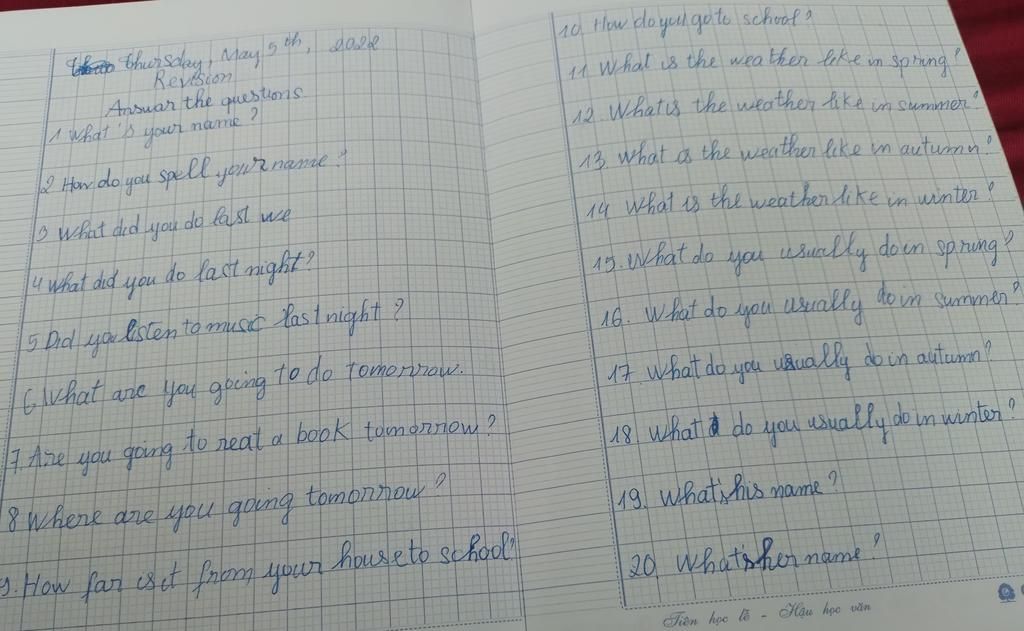 Thursday, May 5th, 2022
Revision
Answar the questions
1 What is your name?
2 How do you spell your name?
3 What did you do last we
4 What did you do last night?
5 Did you listen to music last night?
6 What are you going to do tomorrow.
7. Are you going to reat a book tomorrow?
8 Where are you going tomorrow?
9. How far is it from your house to school?
10 How do you go to school?
11 What is the weather like in spring?
12. What is the weather like in summer?
13. What is the weather like in autumn?
14 What is the weather like in winter?
15. What do you usually do in spring?
16. What do you usually do in summer?
17 What do you usually do in autumn?
18 What do you usually do in winter?
19. What's his name?
20 What's her name?
Tiên học lễ - Hậu học văn